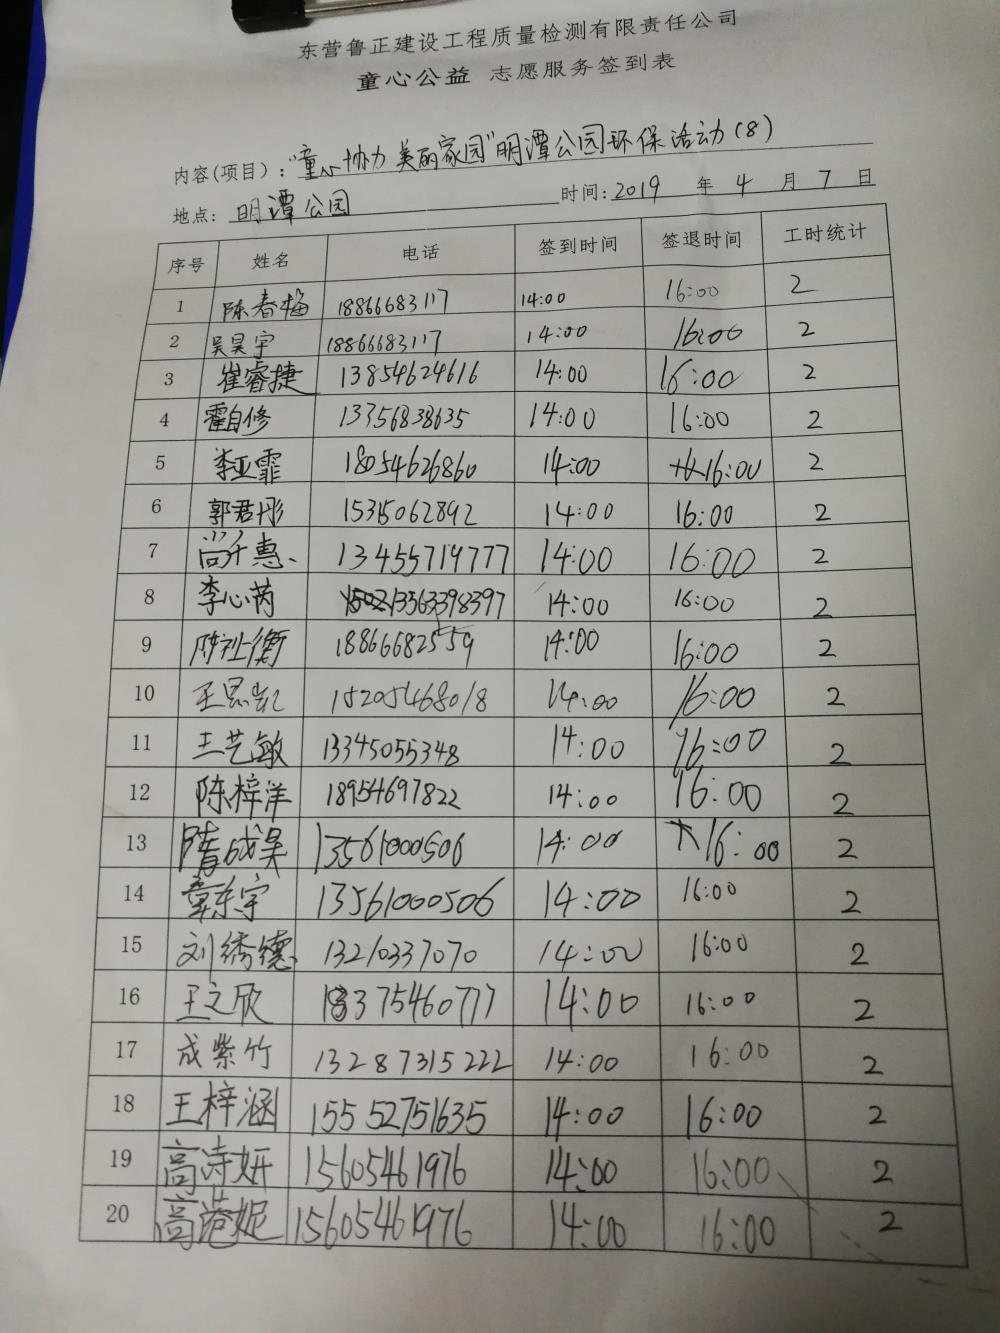 东营鲁正建设工程质量检测有限责任公司
童心公益 志愿服务签到表
内容(项目)："童心协力 美丽家园"明潭公园环保活动(8)
地点: 明潭公园 时间: 2019 年 4 月 7 日
序号 姓名 电话 签到时间 签退时间 工时统计
1 陈春梅 18866683117 14:00 16:00 2
2 吴昊宇 18866683117 14:00 16:00 2
3 崔睿捷 13854624616 14:00 16:00 2
4 霍自修 13356838635 14:00 16:00 2
5 李亚霏 18054626860 14:00 16:00 2
6 郭君彤 15315062892 14:00 16:00 2
7 尚千惠 13455719777 14:00 16:00 2
8 李心芮 13563398397 14:00 16:00 2
9 陈祉衡 18866682559 14:00 16:00 2
10 王思凯 15205468018 14:00 16:00 2
11 王艺敏 13345055348 14:00 16:00 2
12 陈梓洋 18954697822 14:00 16:00 2
13 隋成昊 13561000506 14:00 16:00 2
14 章东宇 13561000506 14:00 16:00 2
15 刘绣德 13210337070 14:00 16:00 2
16 王文欣 18375460777 14:00 16:00 2
17 成紫竹 13287315222 14:00 16:00 2
18 王梓涵 15552751635 14:00 16:00 2
19 高诗妍 15605461976 14:00 16:00 2
20 高菀妮 15605461976 14:00 16:00 2